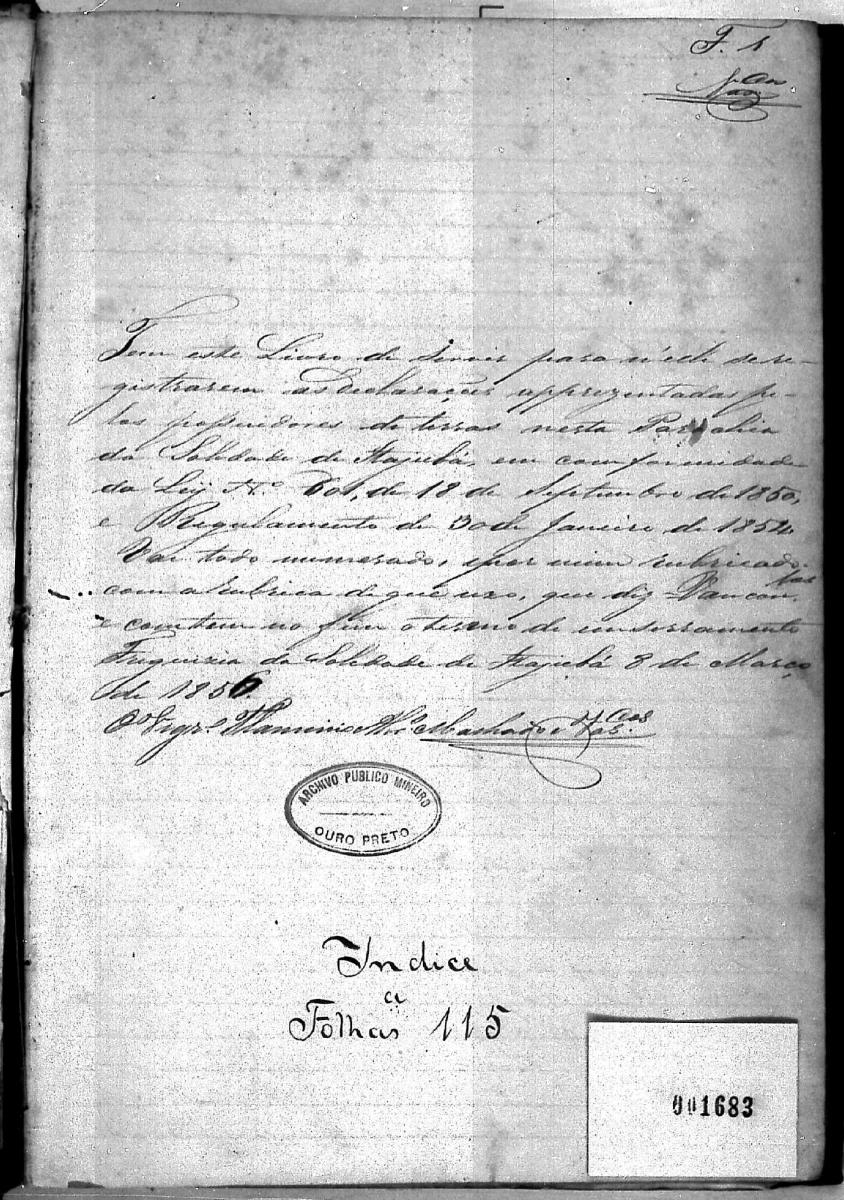 F. 1
Vas.cellos
Tem este Livro de servir para n'elle se re-
gistrarem as declarações apprezentadas pe-
los possuidores de terras nesta Parrochia
da Soledade de Itajubá, em comformidade
da Ley Nº 601, de 18 de Septembro de 1850,
e Regulamento de 30 de Janeiro de 1854.
Vai todo numerado, e por mim rubricado
com a rubrica de que uzo, que diz = Vascon.cellos
e contem no fim o termo de enserramento
Freguezia da Soledade de Itajubá 8 de Março
de 1856.
O Vigr.º Machado e Vas.cellos
ARCHIVO PUBLICO MINEIRO
OURO PRETO
Indice
a
Folhas 115
001683